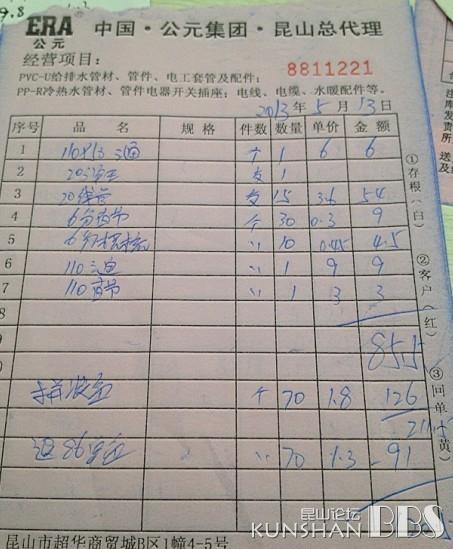 9.8
ERA 中国·公元集团·昆山总代理
公元
经营项目：
PVC-U给排水管材、管件、电工套管及配件；
8811221
PP-R冷热水管材、管件电器开关插座；电线、电缆、水暖配件等。
2013年5月13日
序号 品 名 规 格 件数 数量 单价 金 额
1 三通 个 1 6 6
2 支 1
3 20线管 支 15 3.6 54
4 个 30 0.3 9
5 〃 10 0.45 4.5
6 110 〃 1 9 9
7 110直节 〃 1 3 3
8
9 85.5
个 70 1.8 126
211.5
退86 〃 70 1.3 -91
①存根（白）
②客户（红）
③回单（黄）
昆山市超华商贸城B区1幢4-5号
昆山论坛
KUNSHAN BBS